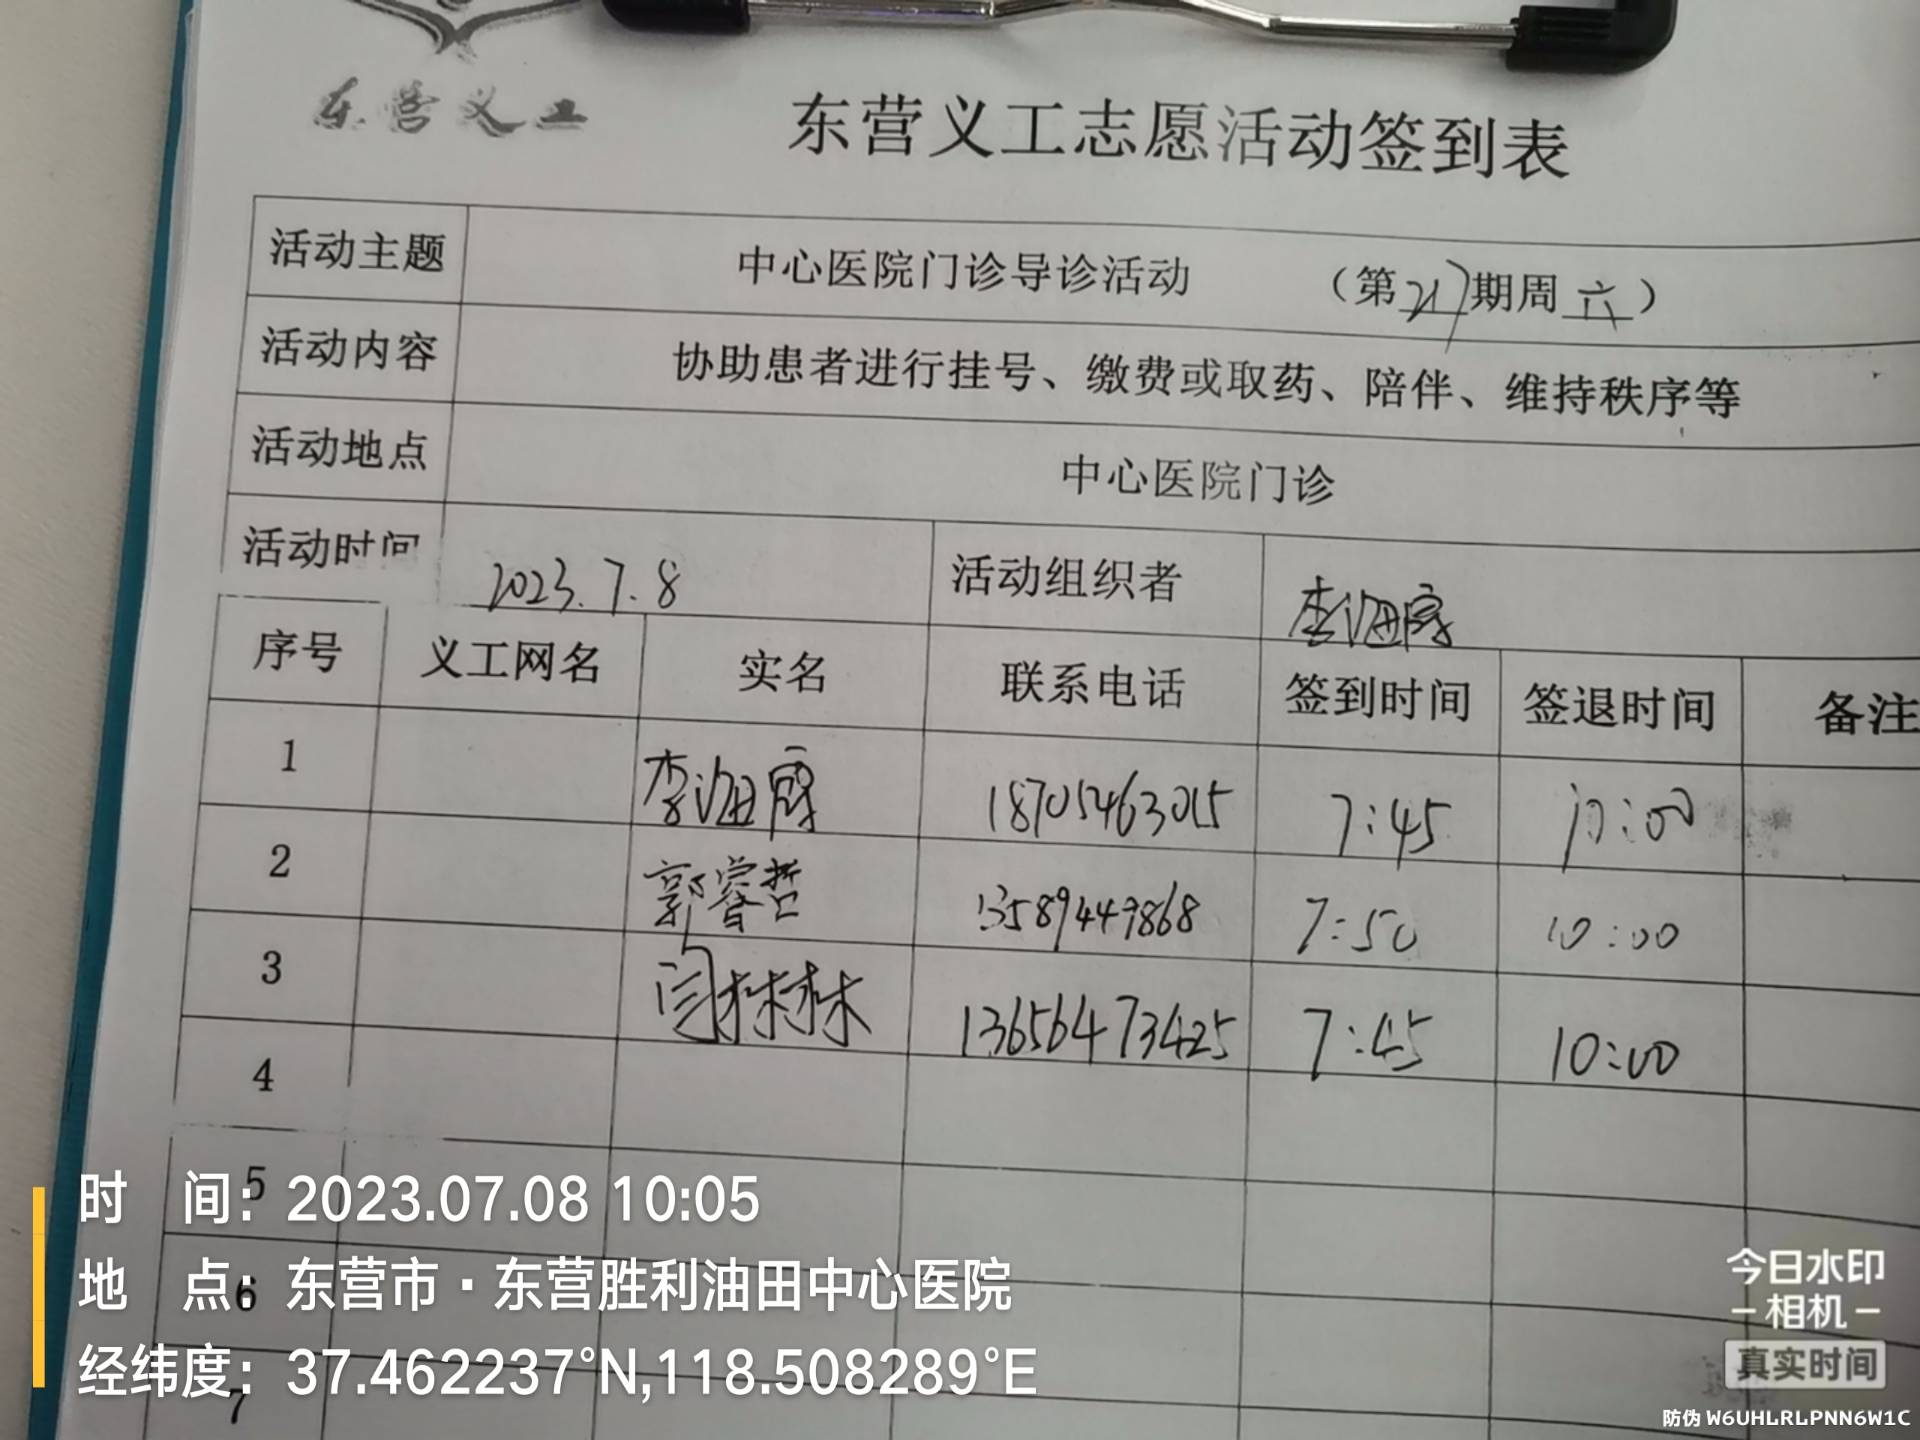 东营义工
东营义工志愿活动签到表
活动主题 中心医院门诊导诊活动 （第217期周六）
活动内容 协助患者进行挂号、缴费或取药、陪伴、维持秩序等
活动地点 中心医院门诊
活动时间 2023.7.8 活动组织者 李海
序号 义工网名 实名 联系电话 签到时间 签退时间 备注
1 李海 18705463015 7:45 10:00
2 郭睿哲 13589449868 7:50 10:00
3 闫林林 13656473425 7:45 10:00
4
5
时 间：2023.07.08 10:05
6
地 点：东营市·东营胜利油田中心医院
经纬度：37.462237°N,118.508289°E
7
今日水印
相机
真实时间
防伪 W6UHLRLPNN6W1C